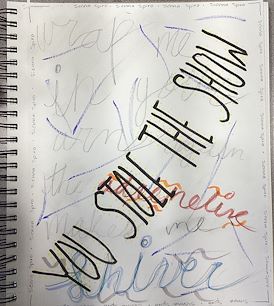 Sienna Spiro - Sienna Spiro - Sienna Spiro
wrap me
in your
arms
the alternative
makes me
shiver
YOU STOLE THE SHOW